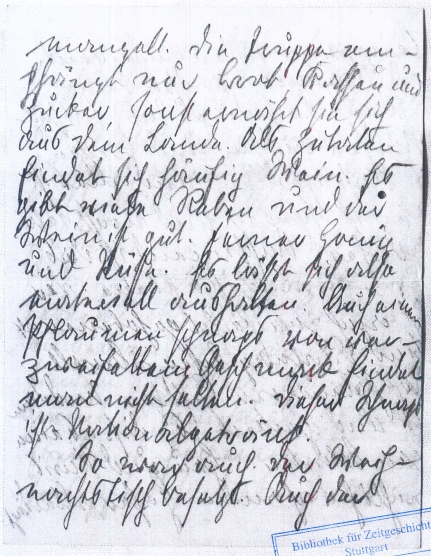 mangelt. Die Truppe em-
pfängt nur Brot, Kaffee und
Zucker, sonst ernährt sie sich
aus dem Lande. Als Zutaten
findet sich häufig Wein. Es
gibt viele Reben und der
Wein ist gut. Ferner Honig
und Nüsse. Es läßt sich also
materiell aushalten. Auch einen
Pflaumenschnaps von
zweifelhaftem Geschmack findet
man nicht selten. Dieser Schnaps
ist Nationalgetränk.
So war auch der Weih-
nachtstisch besetzt. Auch der
Bibliothek für Zeitgeschichte
Stuttgart